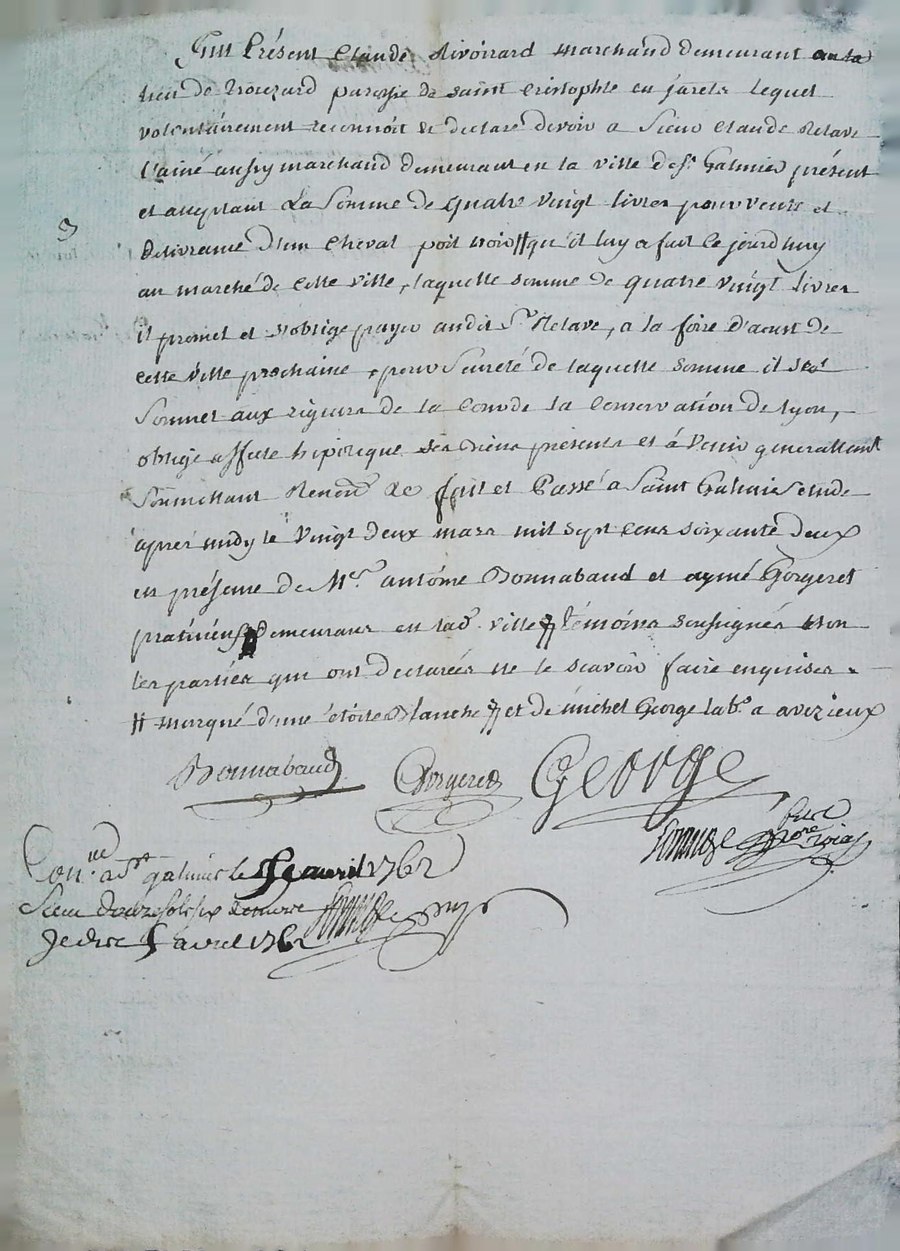 Fut Présent Claude Rivoirard marchand demeurant au la
lieu de paroisse de saint Cristophle en jarets lequel
volontairement reconnoit et declare devoir a Sieur Claude Relave
l'ainé aussy marchand demeurant en la ville de St Galmier présent
et acceptant La Somme de quatre vingt livres pour vente et
délivrance d'un cheval poil noir # qu'il luy a fait ce jourd'huy
au marché de cette ville, laquelle somme de quatre vingt livres
il promet et s'oblige payer audit Sr Relave, a la foire d'aoust de
cette ville prochaine, pour Seureté de laquelle somme il s'est
Soumet aux rigueurs de la Cour de la Conservation de lyon,
oblige affecte hipoteque ses biens présents et à venir generallemt
Soumettant Renonct &c fait et Passé a Saint Galmier etude
apres midy le vingt deux mars mil sept cens soixante deux
en présence de Mes antoine Bonnabaud et aymé Gorgeret
praticiens demeurans en lad. ville # témoins soussignés non
les parties qui ont declarées ne le scavoir faire enquises
# marqué d'une étoile Blanche # et de michel George labr a avezieux
Bonnabaud Gorgeret George
Con.lle a St galmier le 5 avril 1762
avril 1762